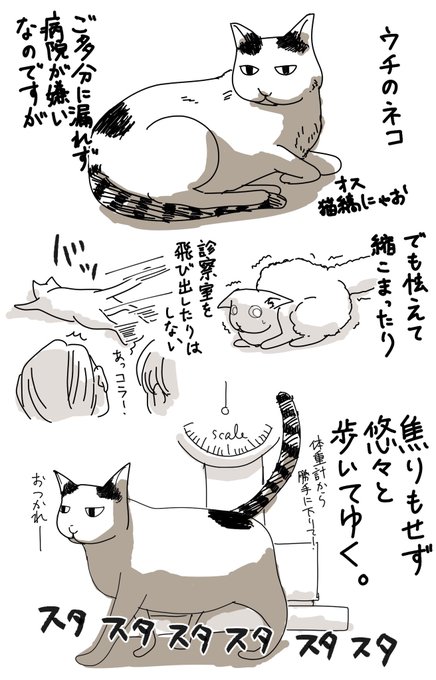 ウチのネコ
オス
猫縞にゃお
ご多分に漏れず
病院が嫌い
なのですが
でも怯えて
縮こまったり
診察室を
飛び出したりは
しない
あっコラ!
焦りもせず
悠々と
歩いてゆく。
体重計から
勝手に下りて!
scale
おつかれー
スタ スタ スタ スタ スタ スタ